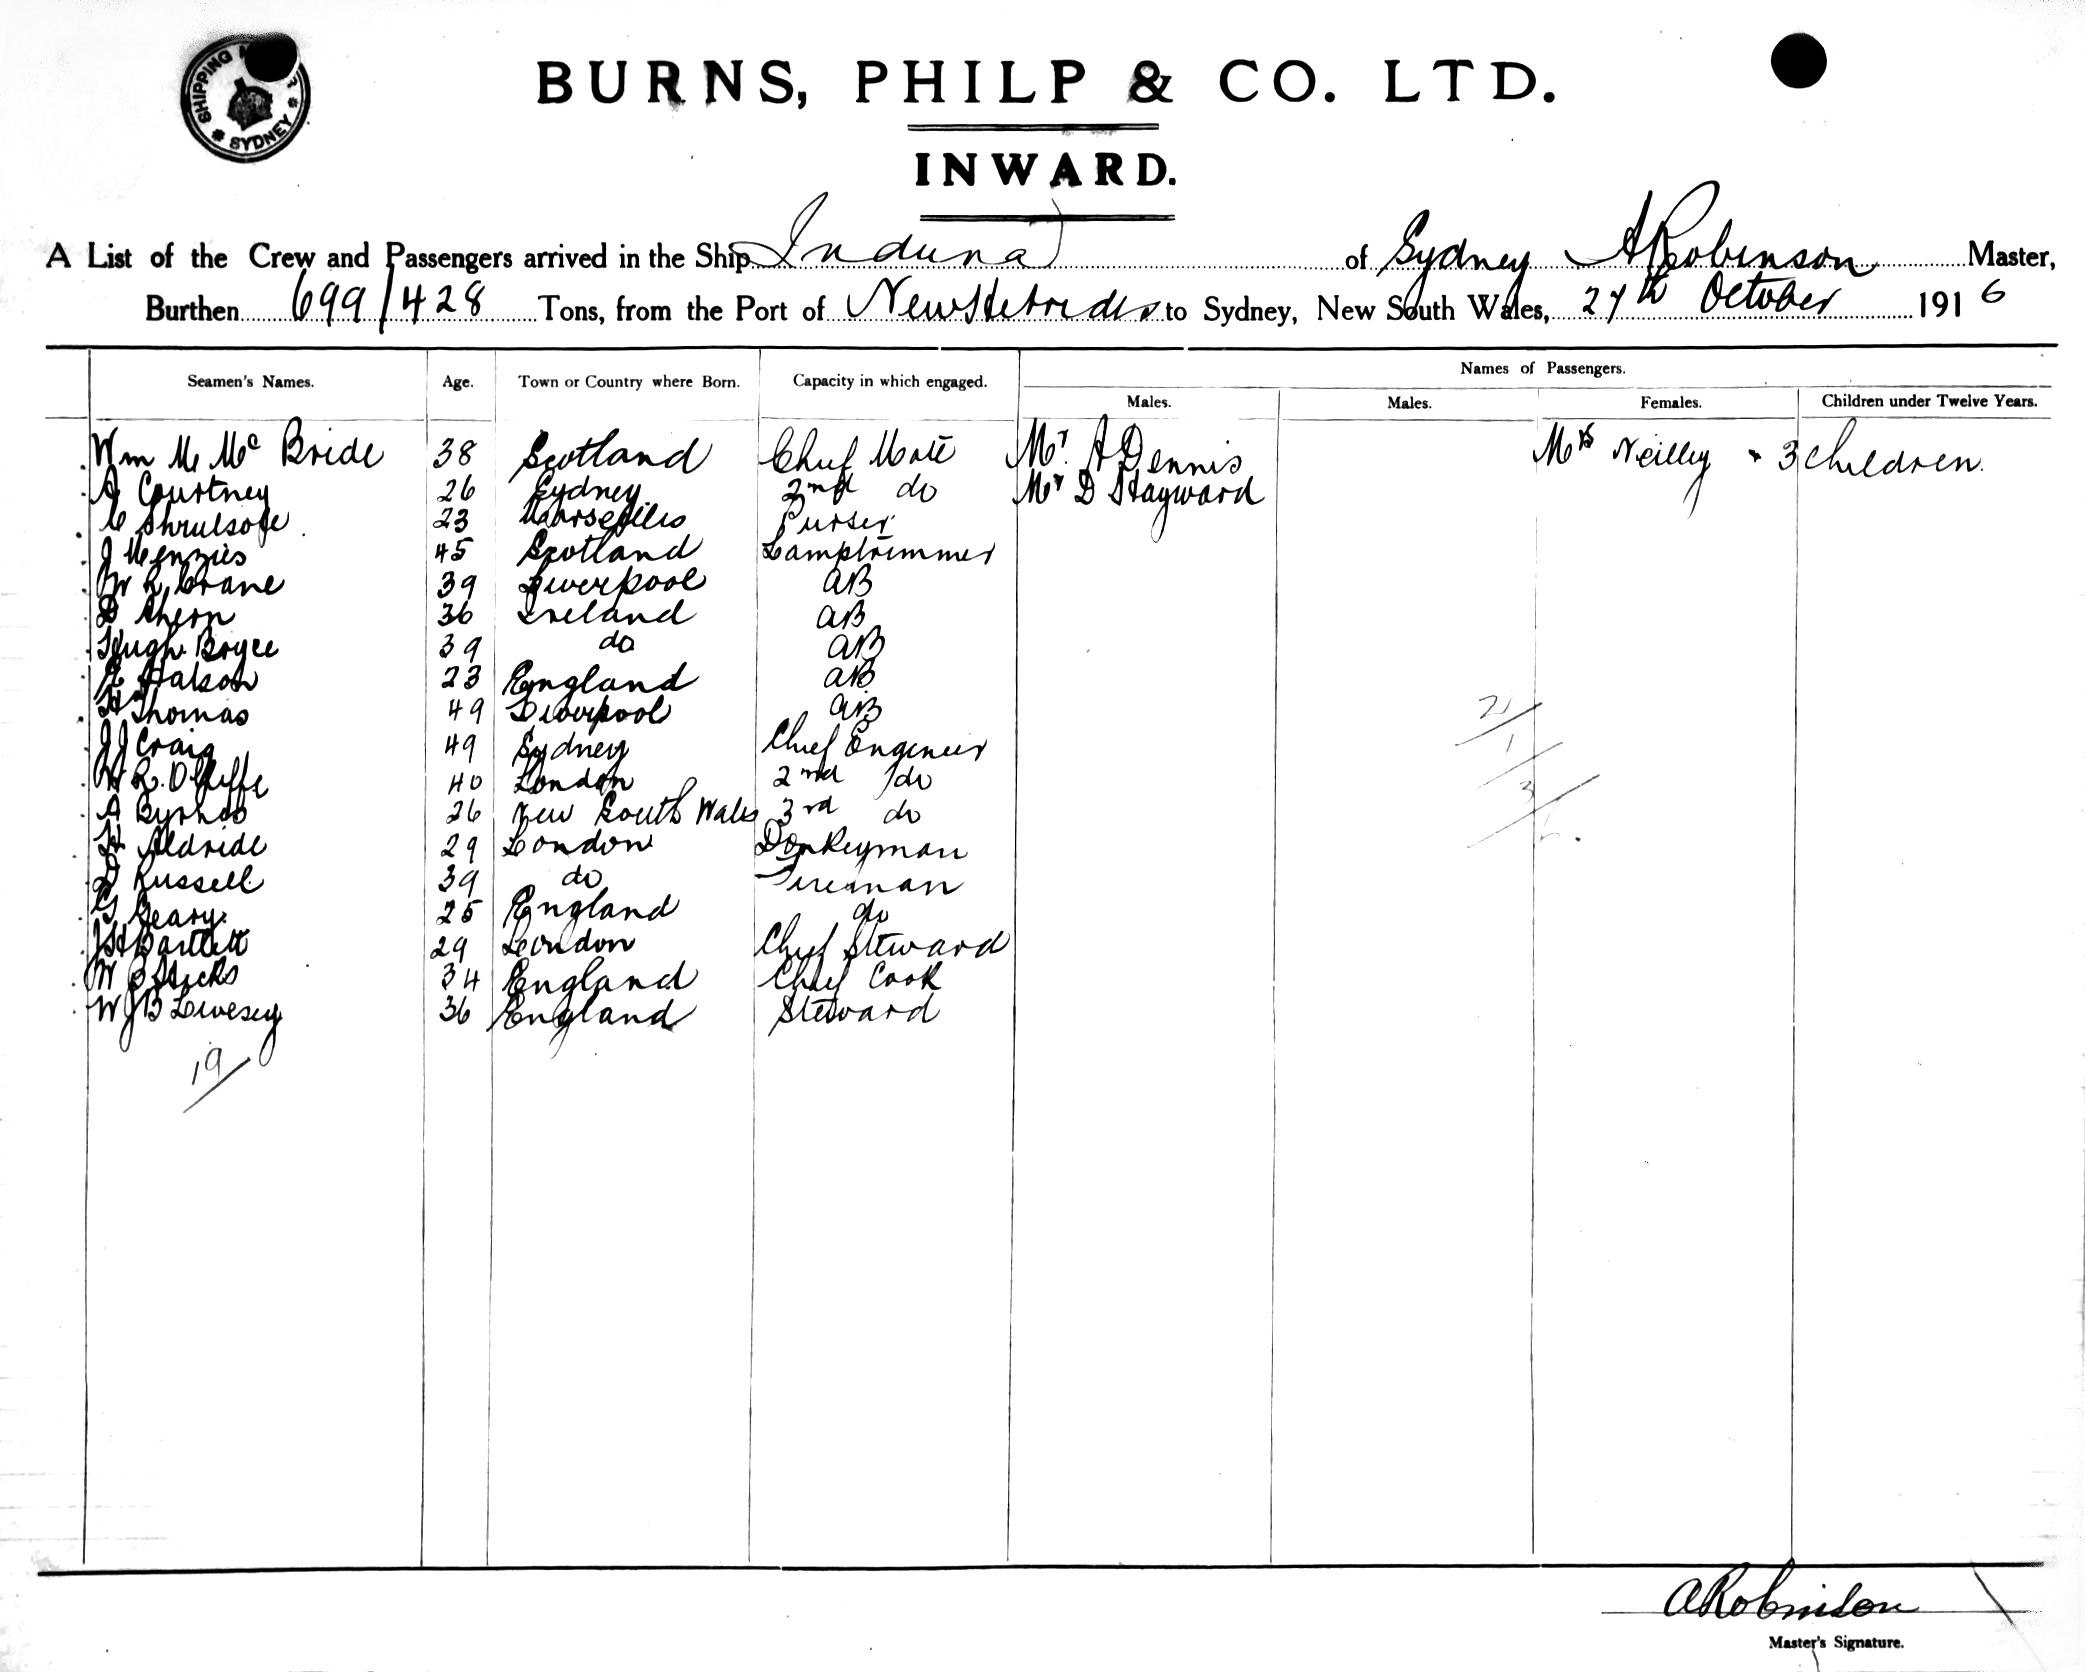 SHIPPING
SYDNEY
BURNS, PHILP & CO. LTD.
INWARD.
A List of the Crew and Passengers arrived in the Ship Induna of Sydney A Robinson Master,
Burthen 699/428 Tons, from the Port of New Hebrides to Sydney, New South Wales, 27th October 1916
Names of Passengers.
Seamen's Names. Age. Town or Country where Born. Capacity in which engaged. Males. Males. Females. Children under Twelve Years.
Wm M McBride 38 Scotland Chief Mate Mr. A Dennis Mrs Neilley & 3 children.
J Courtney 26 Sydney 2nd do Mr D Hayward
23 Marseilles Purser
J Menzies 45 Scotland Lamptrimmer
W R Crane 39 Liverpool AB
D Ahern 36 Ireland AB
Hugh Boyce 39 do AB
23 England AB
H Thomas 49 Liverpool AB
J J Craig 49 Sydney Chief Engineer
W R. 40 London 2nd do
A Byrnes 26 New South Wales 3rd do
H Aldride 29 London Donkeyman
D Russell 39 do Fireman
G Geary 25 England do
J H Bartlett 29 London Chief Steward
W 34 England Chief Cook
W J B Livesey 36 England Steward
19
2
1
3
6.
A Robinson
Master's Signature.